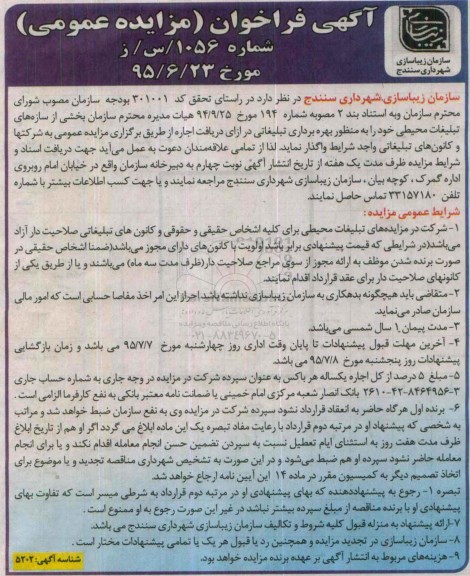 آگهی فراخوان (مزایده عمومی)
شماره ۱۰۵۶/س/ز
مورخ ۹۵/۶/۲۳
سازمان زیباسازی
شهرداری سنندج
سازمان زیباسازی شهرداری سنندج در نظر دارد در راستای تحقق کد ۳۰۱۰۰۱ بودجه سازمان مصوب شورای
محترم سازمان وبه استناد بند ۲ مصوبه شماره ۱۹۴ مورخ ۹۴/۹/۲۵ هیات مدیره محترم سازمان بخشی از سازه‌های
تبلیغات محیطی خود را به منظور بهره برداری تبلیغاتی در ازای دریافت اجاره از طریق برگزاری مزایده عمومی به شرکتها
و کانون‌های تبلیغاتی واجد شرایط واگذار نماید. لذا از تمامی علاقه‌مندان دعوت به عمل می‌آید جهت دریافت اسناد و
شرایط مزایده ظرف مدت یک هفته از تاریخ انتشار آگهی نوبت چهارم به دبیرخانه سازمان واقع در خیابان امام روبروی
اداره گمرک ، کوچه بیان ، سازمان زیباسازی شهرداری سنندج مراجعه نمایند و یا جهت کسب اطلاعات بیشتر با شماره
تلفن ۳۳۱۵۷۱۸۰ تماس حاصل نمایند.
شرایط عمومی مزایده :
۱- شرکت در مزایده‌های تبلیغات محیطی برای کلیه اشخاص حقیقی و حقوقی و کانون های تبلیغاتی صلاحیت دار آزاد
می‌باشد(در شرایطی که قیمت پیشنهادی برابر باشد اولویت با کانون‌های دارای مجوز می‌باشد)ضمنا اشخاص حقیقی در
صورت برنده شدن موظف به ارائه مجوز از سوی مراجع صلاحیت دار(ظرف مدت سه ماه) می‌باشند و یا از طریق یکی از
کانونهای صلاحیت دار برای عقد قرارداد اقدام نمایند.
۲-متقاضی باید هیچگونه بدهکاری به سازمان زیباسازی نداشته باشد احراز این امر اخذ مفاصا حسابی است که امور مالی
سازمان صادر می‌نماید.
۳-مدت پیمان ۱ سال شمسی می‌باشد.
۴- آخرین مهلت قبول پیشنهادات تا پایان وقت اداری روز چهارشنبه مورخ ۹۵/۷/۷ می باشد و زمان بازگشایی
پیشنهادات روز پنجشنبه مورخ ۹۵/۷/۸ می باشد.
۵- مبلغ ۵ درصد از کل اجاره یکساله هر باکس به عنوان سپرده شرکت در مزایده در وجه جاری به شماره حساب جاری
۳-۸۴۶۴۹۵۶-۴۲-۲۶۱۰ بانک انصار شعبه مرکزی امام خمینی یا ضمانت نامه معتبر بانکی به نفع کارفرما الزامی است .
۶- برنده اول هرگاه حاضر به انعقاد قرارداد نشود سپرده شرکت در مزایده وی به نفع سازمان ضبط خواهد شد و مراتب
به شخصی که پیشنهاد او در مرتبه دوم قرارداد با رعایت مفاد تبصره یک این ماده ابلاغ می گردد اگر او هم از تاریخ ابلاغ
ظرف مدت هفت روز به استثنای ایام تعطیل نسبت به سپردن تضمین حسن انجام معامله اقدام نکند و یا برای انجام
معامله حاضر نشود سپرده او هم ضبط می‌شود و در این صورت به تشخیص شهرداری مناقصه تجدید و یا موضوع برای
اتخاذ تصمیم دیگر به کمیسیون مقرر در ماده ۱۴ این آیین نامه ارجاع خواهد شد.
تبصره ۱- رجوع به پیشنهاددهنده که بهای پیشنهادی او در مرتبه دوم قرارداد به شرطی میسر است که تفاوت بهای
پیشنهادی او با برنده مناقصه از مبلغ سپرده بیشتر نباشد در غیر این صورت رجوع به او ممنوع است .
۷-ارائه پیشنهاد به منزله قبول کلیه شروط و تکالیف سازمان زیباسازی شهرداری سنندج می باشد.
۸- سازمان زیباسازی در تجدید مزایده و همچنین رد یا قبول هر یک یا تمامی پیشنهادات مختار است .
۹- هزینه‌های مربوط به انتشار آگهی بر عهده برنده مزایده خواهد بود.
شناسه آگهی: ۵۳۰۲